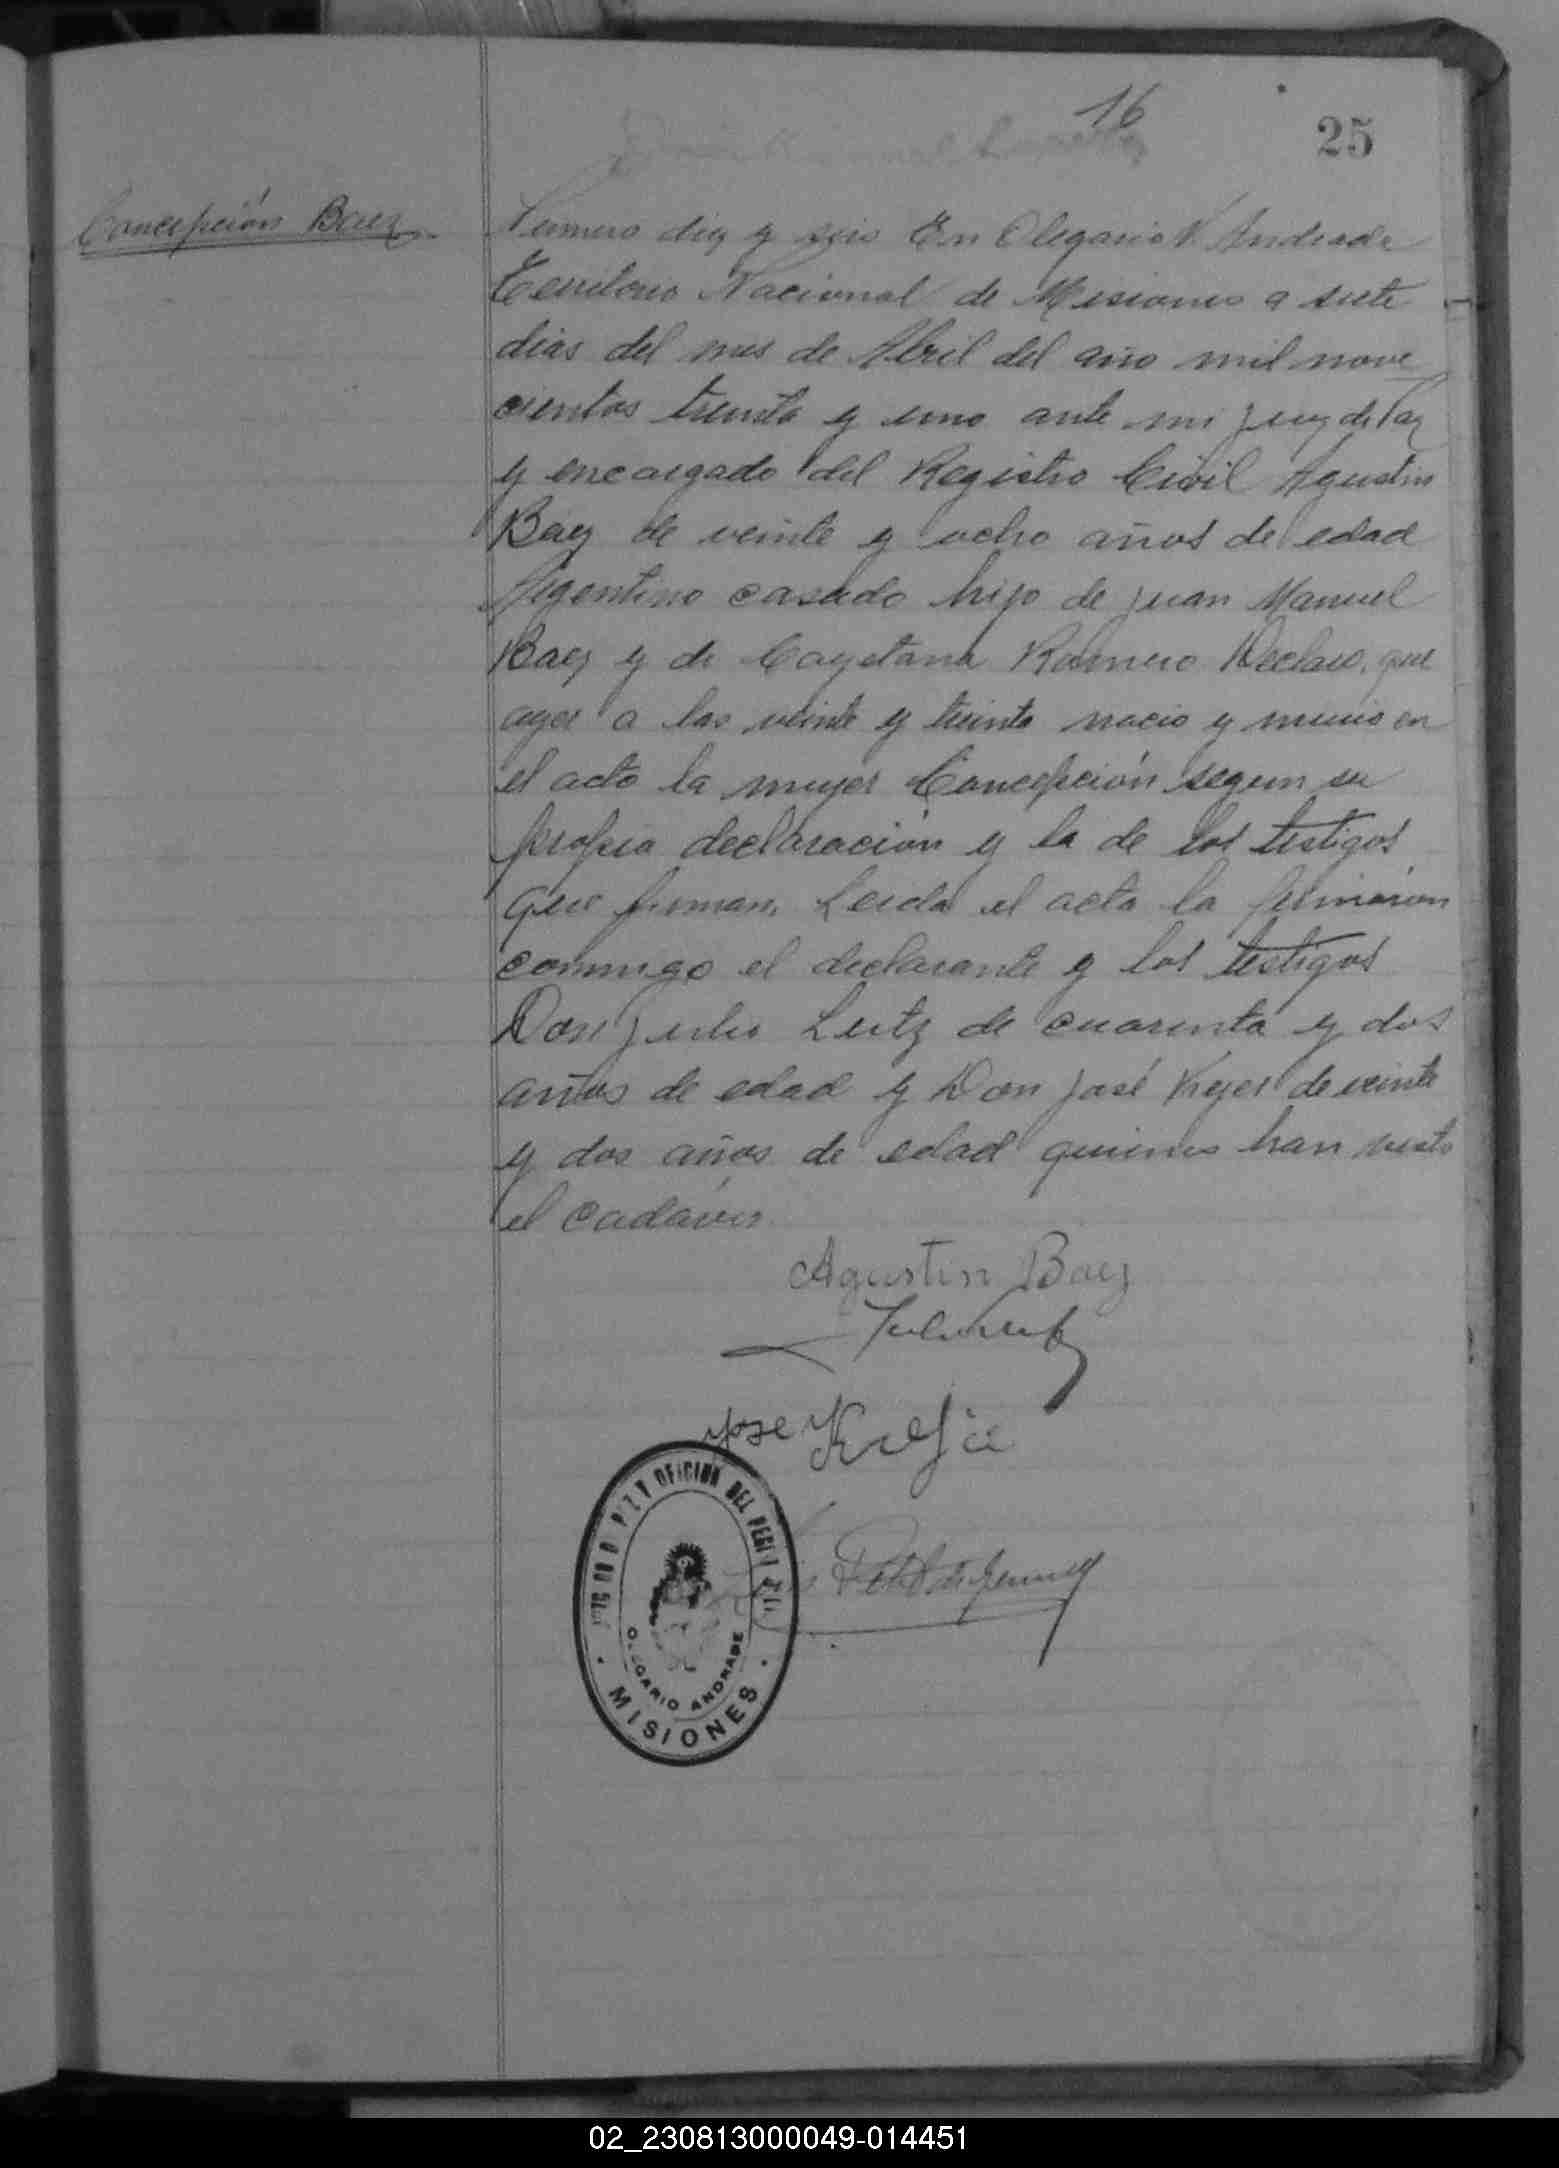 16
25
Concepción Baez
Numero diez y seis En Olegario V. Andrade
Territorio Nacional de Misiones a siete
dias del mes de Abril del año mil nove
cientos treinta y uno ante mi Juez de Paz
y encargado del Registro Civil Agustin
Baez de veinte y ocho años de edad
Argentino casado hijo de Juan Manuel
Baez y de Cayetana Romero Declaro, que
ayer a las veinte y treinta nacio y murio en
el acto la mujer Concepción segun su
propia declaración y la de los testigos
que firman. Leida el acta la firmaron
conmigo el declarante y los testigos
Don Julio Lutz de cuarenta y dos
años de edad y Don José Kejer de veinte
y dos años de edad quienes han visto
el cadáver
Agustin Baez
Jose
OFICINA DEL
OLEGARIO ANDRADE
MISIONES
02_230813000049-014451